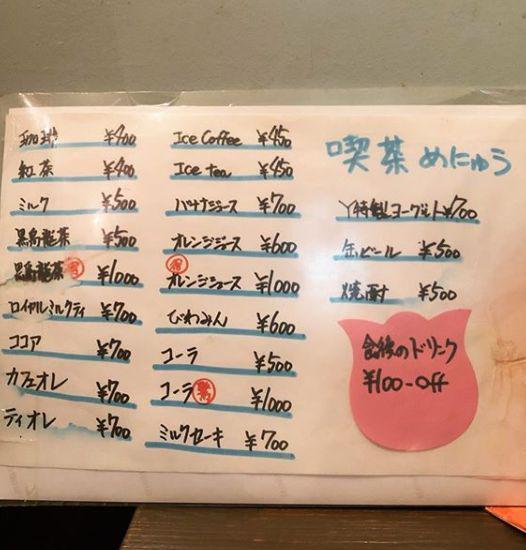 珈琲 ¥400
紅茶 ¥400
ミルク ¥500
黒烏龍茶 ¥500
黒烏龍茶 ¥1000
ロイヤルミルクティ ¥700
ココア ¥700
カフェオレ ¥700
ティオレ ¥700
Ice Coffee ¥450
Ice tea ¥450
バナナジュース ¥700
オレンジジュース ¥600
オレンジジュース ¥1000
びわみん ¥600
コーラ ¥500
コーラ ¥1000
ミルクセーキ ¥700
喫茶めにゅう
Y特製ヨーグルト ¥700
缶ビール ¥500
焼酎 ¥500
食後のドリンク
¥100-off